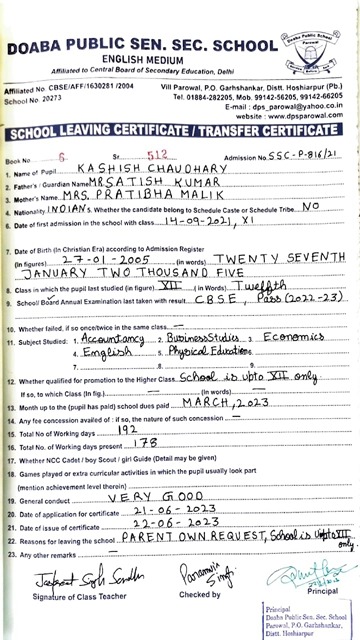 DOABA PUBLIC SEN. SEC. SCHOOL
ENGLISH MEDIUM
Affiliated to Central Board of Secondary Education, Delhi
Doaba Public School
Parowal
Affiliated No. CBSE/AFF/1630281 /2004
School No. 20273
Vill Parowal, P.O. Garhshankar, Distt. Hoshiarpur (Pb.)
Tel. 01884-282205, Mob. 99142-56205, 99142-66205
E-mail : dps_parowal@yahoo.co.in
website : www.dpsparowal.com
SCHOOL LEAVING CERTIFICATE / TRANSFER CERTIFICATE
Book No 6 Sr 512 Admission No. SSC-P-816/21
1. Name of Pupil KASHISH CHAUDHARY
2. Father's / Guardian Name MR SATISH KUMAR
3. Mother's Name MRS. PRATIBHA MALIK
4. Nationality INDIAN 5. Whether the candidate belong to Schedule Caste or Schedule Tribe NO
6. Date of first admission in the school with class 14-09-2021, XI
7. Date of Birth (In Christian Era) according to Admission Register
(in figures) 27-01-2005 (in words) TWENTY SEVENTH
JANUARY TWO THOUSAND FIVE
8. Class in which the pupil last studied (in figure) XII (in Words) Twelfth
9. School / Board Annual Examination last taken with result CBSE, Pass (2022-23)
10. Whether failed, if so once/twice in the same class. —
11. Subject Studied : 1. Accountancy 2. Business Studies 3. Economics
4. English 5. Physical Education 6.
7. 8. 9.
12. Whether qualified for promotion to the Higher Class School is upto XII only.
If so, to which Class (In fig.) — (in Words) —
13. Month up to the (pupil has paid) school dues paid MARCH, 2023
14. Any fee concession availed of : if so, the nature of such concession —
15. Total No of Working days 192
16. Total No. of Working days present 178
17. Whether NCC Cadet / boy Scout / girl Guide (Detail may be given)
18. Games played or extra curricular activities in which the pupil usually look part
(mention achievement level therein)
19. General conduct VERY GOOD
20. Date of application for certificate 21-06-2023
21. Date of issue of certificate 22-06-2023
22. Reasons for leaving the school PARENT OWN REQUEST, School is upto XII only.
23. Any other remarks —
Signature of Class Teacher
Checked by
Principal
Principal
Doaba Public Sen. Sec. School
Parowal, P.O. Garhshankar,
Distt. Hoshiarpur